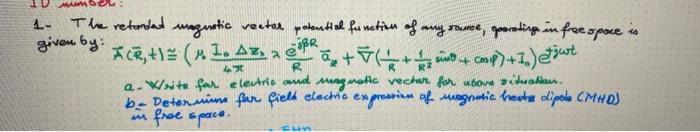 ID number:
1- The retarded magnetic vector potential function of any source, operating in free space is
given by: Ā(R̄,t) ≅ (μ I₀ Δz₀ / 4π · e^jβR / R ā_z + ∇̄(1/R + 1/R² sinθ + cosφ) + I₀) e^jωt
a- Write far electric and magnetic vector for above situation.
b- Determine far field electric expression of magnetic hertz dipole (MHD)
in free space.